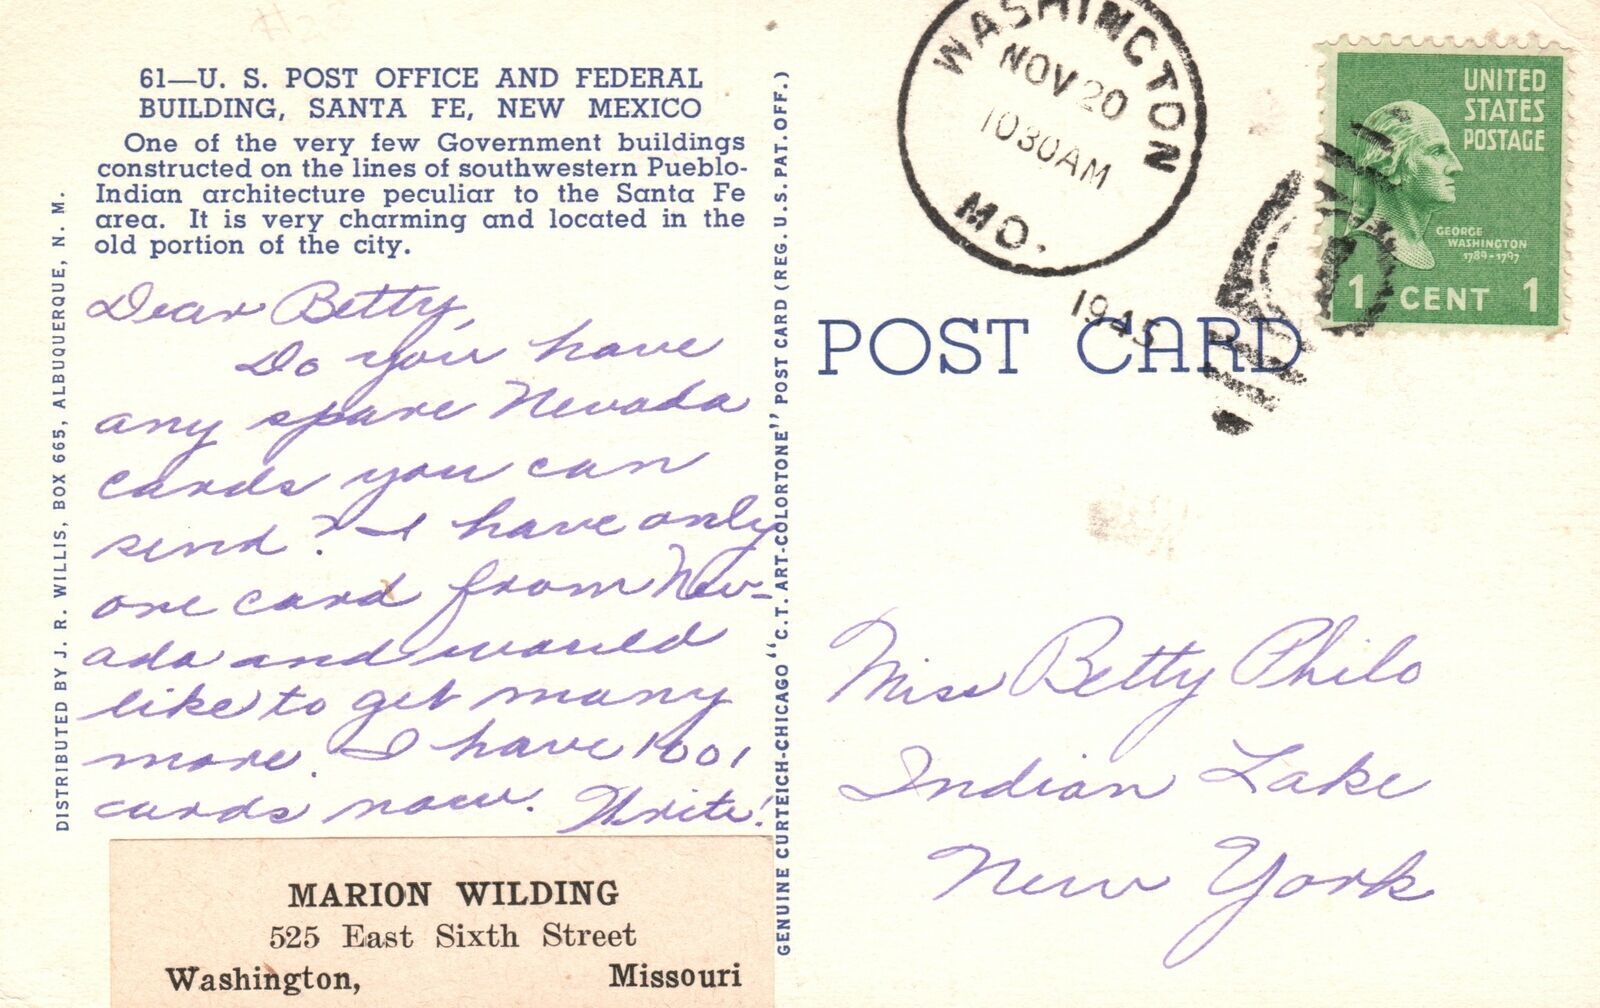 61—U. S. POST OFFICE AND FEDERAL
BUILDING, SANTA FE, NEW MEXICO
One of the very few Government buildings
constructed on the lines of southwestern Pueblo-
Indian architecture peculiar to the Santa Fe
area. It is very charming and located in the
old portion of the city.
DISTRIBUTED BY J. R. WILLIS, BOX 665, ALBUQUERQUE, N. M.
Dear Betty,
Do you have
any spare Nevada
cards you can
send? I have only
one card from Nev-
ada and would
like to get many
more. I have 1001
cards now. Write!
MARION WILDING
525 East Sixth Street
Washington, Missouri
GENUINE CURTEICH-CHICAGO "C.T. ART-COLORTONE" POST CARD (REG. U.S. PAT. OFF.)
WASHINGTON
NOV 20
1030AM
MO.
1945
UNITED
STATES
POSTAGE
GEORGE
WASHINGTON
1789-1797
1 CENT 1
POST CARD
Miss Betty Philo
Indian Lake
New York